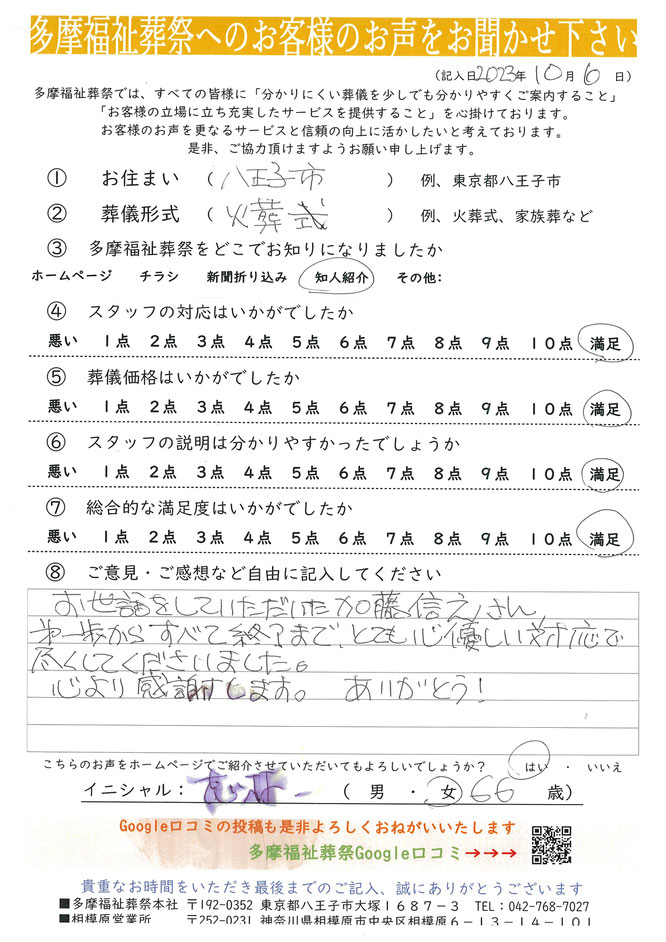 多摩福祉葬祭へのお客様のお声をお聞かせ下さい
(記入日2023年10月6日)
多摩福祉葬祭では、すべての皆様に「分かりにくい葬儀を少しでも分かりやすくご案内すること」
「お客様の立場に立ち充実したサービスを提供すること」を心掛けております。
お客様のお声を更なるサービスと信頼の向上に活かしたいと考えております。
是非、ご協力頂けますようお願い申し上げます。
① お住まい (八王子市) 例、東京都八王子市
② 葬儀形式 (火葬式) 例、火葬式、家族葬など
③ 多摩福祉葬祭をどこでお知りになりましたか
ホームページ チラシ 新聞折り込み 知人紹介 その他:
④ スタッフの対応はいかがでしたか
悪い 1点 2点 3点 4点 5点 6点 7点 8点 9点 10点 満足
⑤ 葬儀価格はいかがでしたか
悪い 1点 2点 3点 4点 5点 6点 7点 8点 9点 10点 満足
⑥ スタッフの説明は分かりやすかったでしょうか
悪い 1点 2点 3点 4点 5点 6点 7点 8点 9点 10点 満足
⑦ 総合的な満足度はいかがでしたか
悪い 1点 2点 3点 4点 5点 6点 7点 8点 9点 10点 満足
⑧ ご意見・ご感想など自由に記入してください
お世話をしていただいた加藤信え さん
第一歩からすべて終了まで、とても心優しい対応で
尽くしてくださいました。
心より感謝します。 ありがとう!
こちらのお声をホームページでご紹介させていただいてもよろしいでしょうか? はい ・ いいえ
イニシャル: (男 ・ 女 66歳)
Google口コミの投稿も是非よろしくおねがいいたします
多摩福祉葬祭Google口コミ→→→
貴重なお時間をいただき最後までのご記入、誠にありがとうございます
■多摩福祉葬祭本社 〒192-0352 東京都八王子市大塚1687-3 TEL:042-768-7027
■相模原営業所 〒252-0231 神奈川県相模原市中央区相模原6-13-14-101